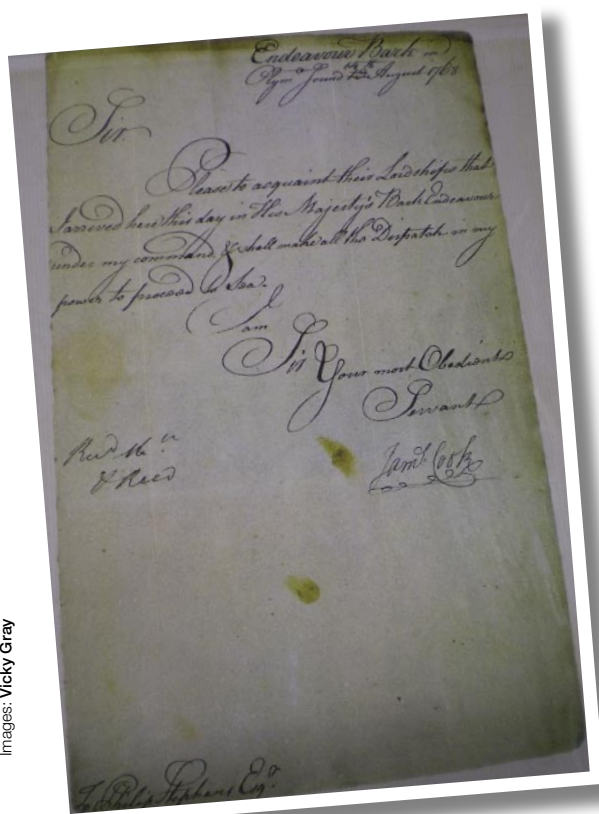 Endeavour Bark in
Plymo Sound 14th August 1768
Sir
Please to acquaint their Lordships that
I arrived here this day in His Majesty's Bark Endeavour
under my command, & shall make all the Dispatch in my
power to proceed to Sea.
I am
Sir
Your most Obedient
Servant
Jams Cook
Recd 16th
& Read
To Philip Stephens Esqr
Images: Vicky Gray